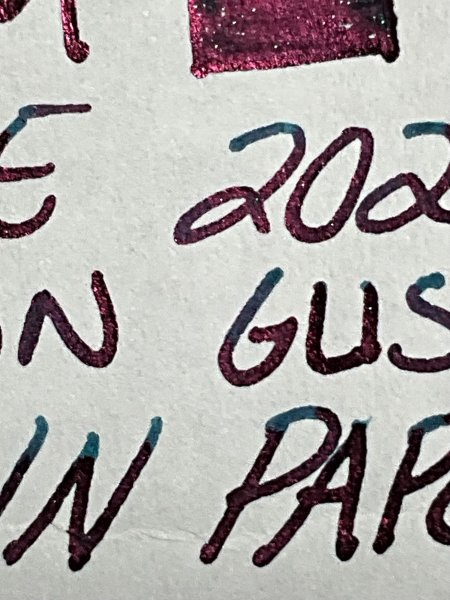 E 202
ON GUS
IN PAP